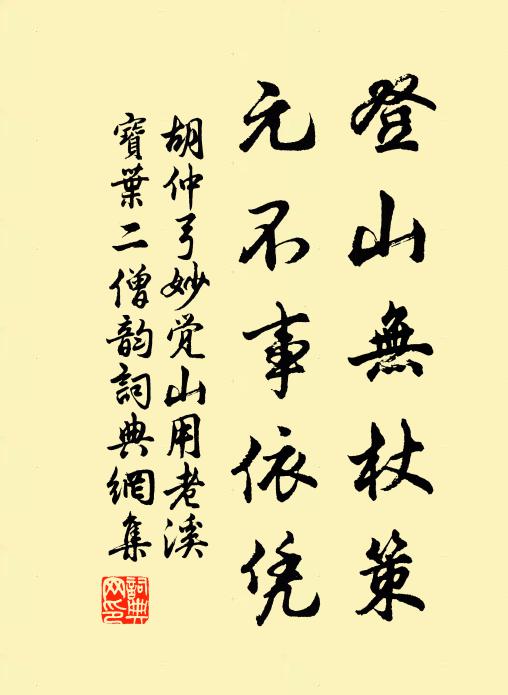 登山無杖策
元不事依凭
胡仲弓妙觉山用老溪
寶葉二僧韵詞典網集
詞典
网印